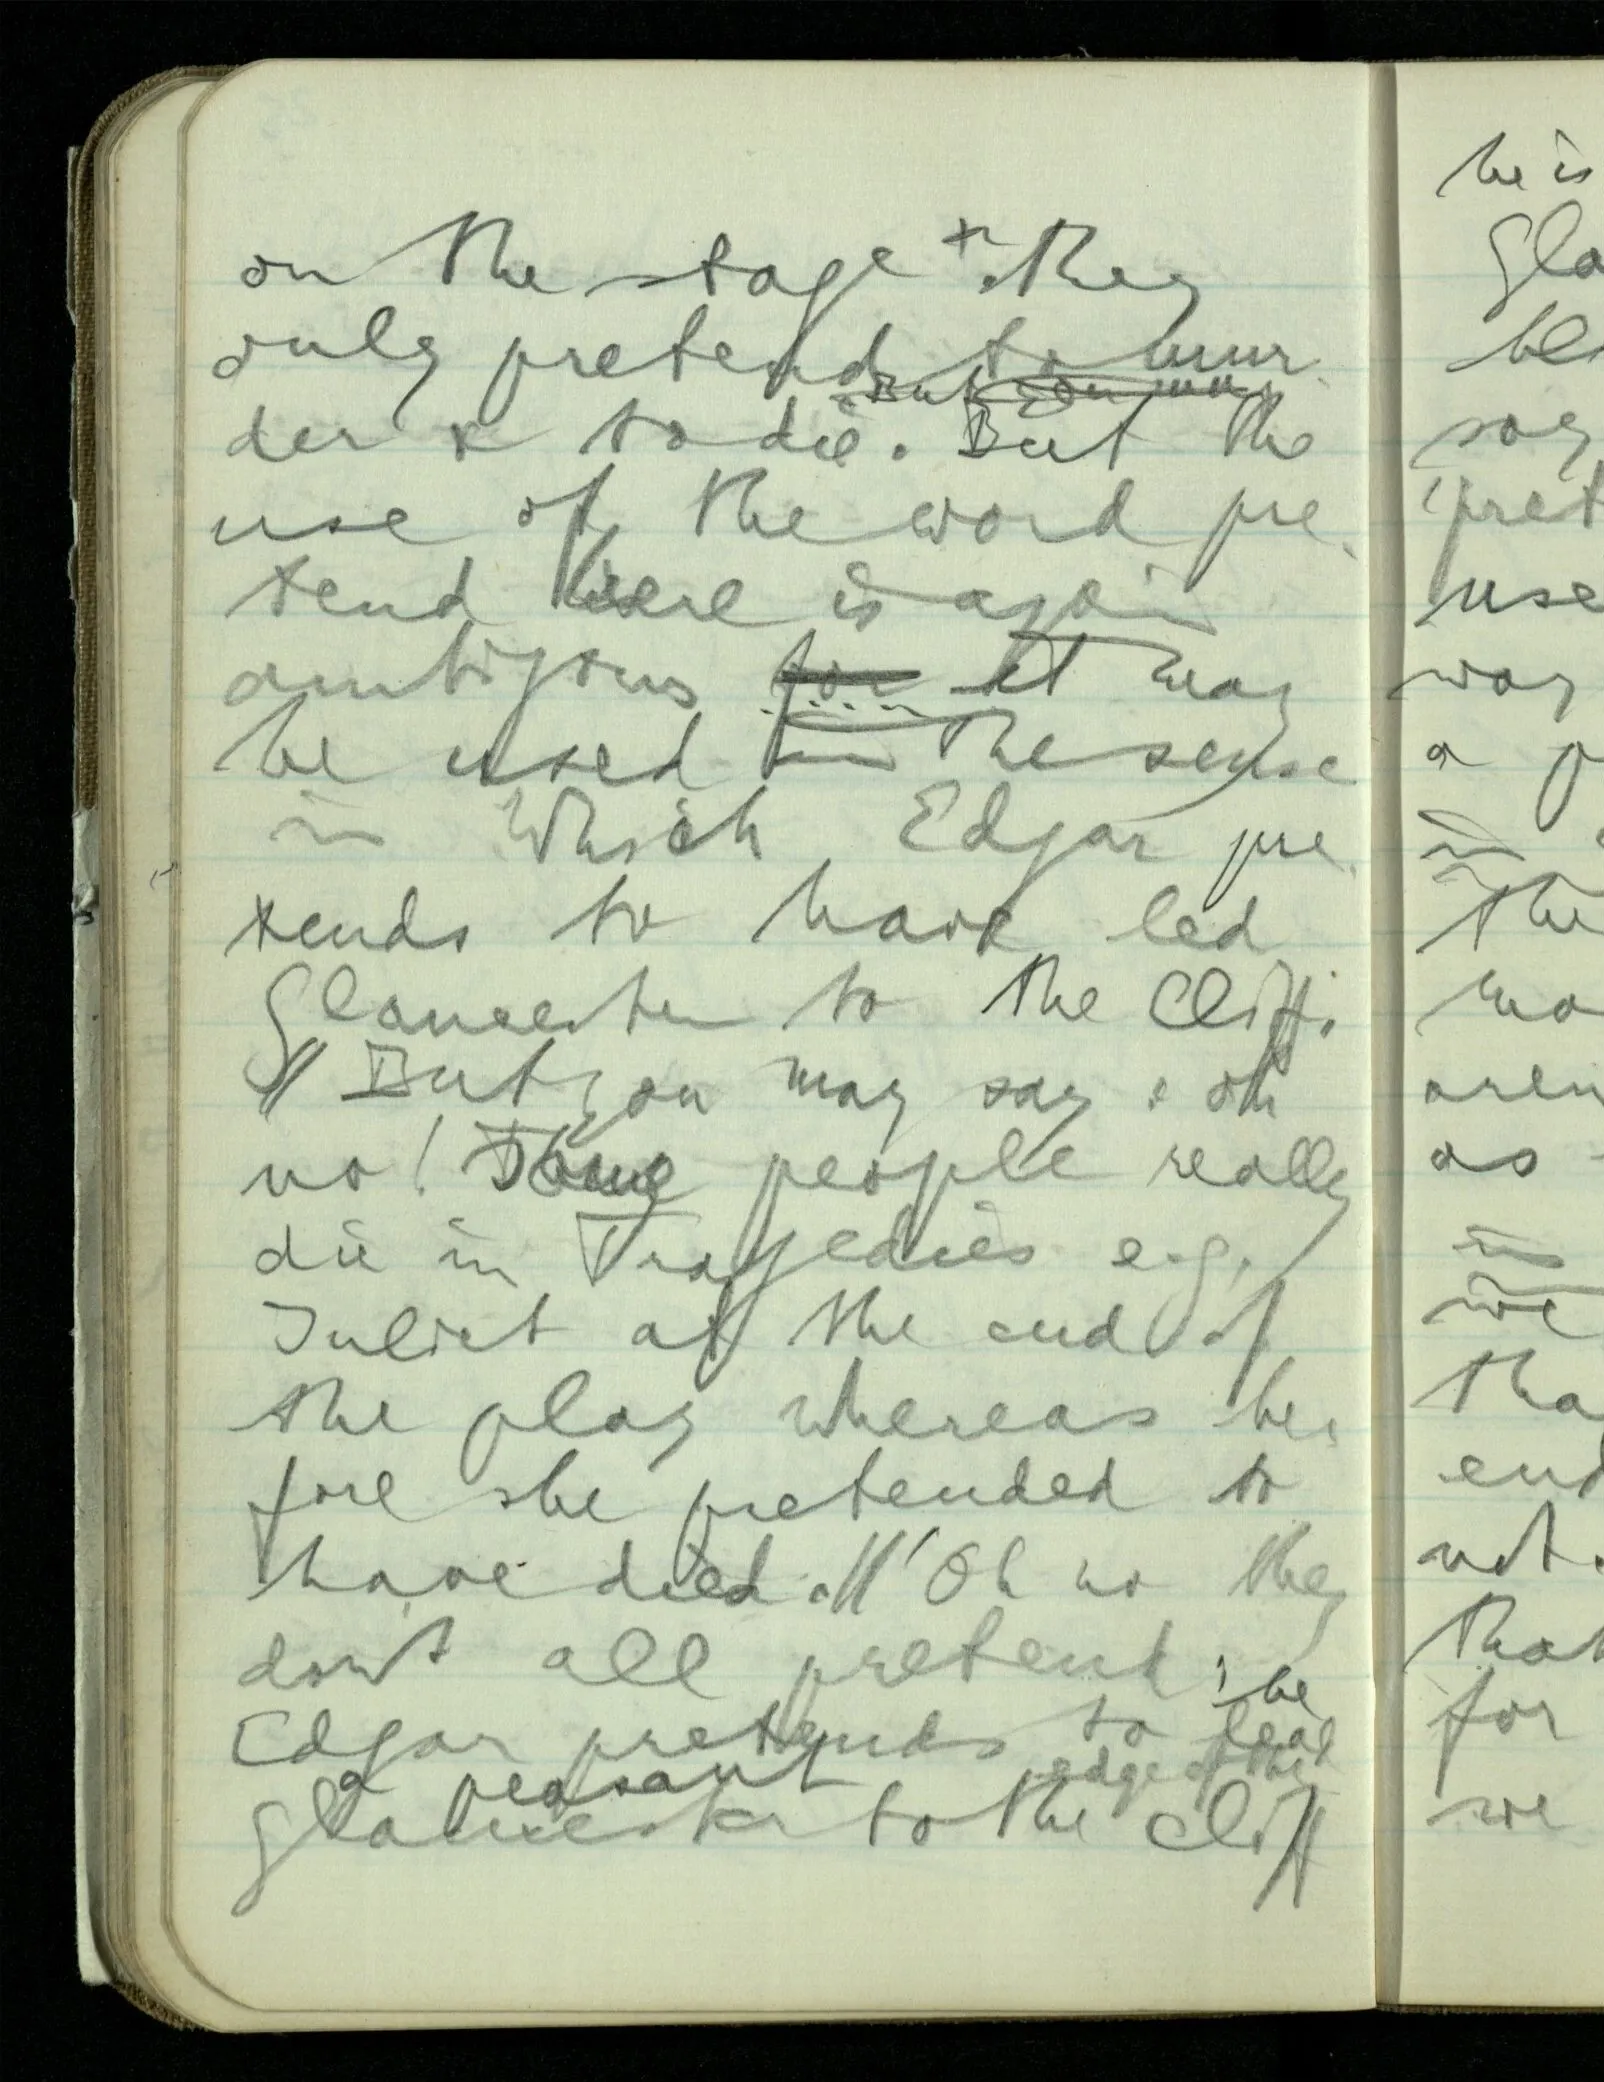 on the stage + they
only pretend to mur-
But
der & to die. But the
use of the word pre-
tend here is again
ambigous for it may
be used in the sense
in which Edgar pre-
tends to have led
Gloucester to the Cliff.
// But you may say: oh
no! Some people really
die in Tragedies e.g.
Juliet at the end of
the play whereas be-
fore she pretended to
have died. // 'Oh no they
don't all pretend;
be
Edgar pretends to lead
a peasant edge of the
Gloucester to the Cliff
he is
Glo
say
pret
use
way
a p
in
the
as
we
tha
end
not.
that
for
we